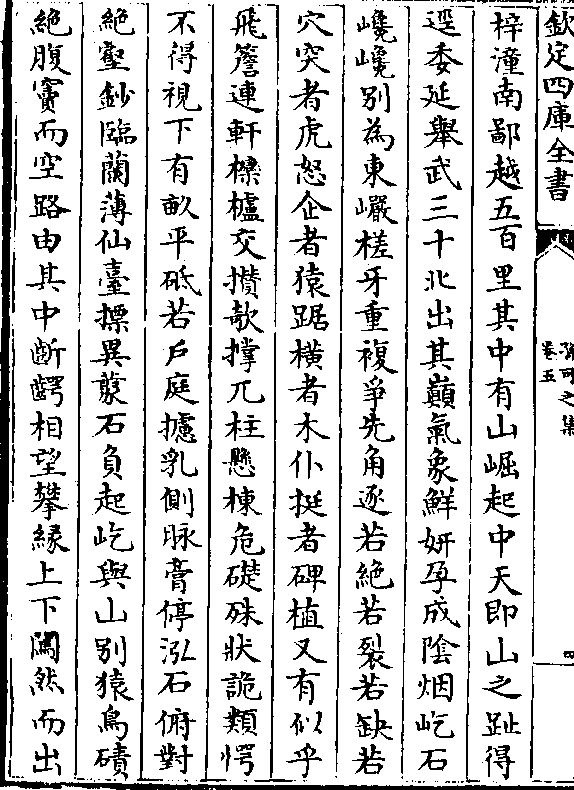 欽定四庫全書
孫可之集
卷五
四
梓潼南鄙越五百里其中有山崛起中天即山之趾得
逕委延舉武三十北出其巔氣象鮮妍孕成陰烟屹石
巉巉别為東巘槎牙重複爭先角逐若絶若裂若缺若
穴突者虎怒企者猿踞横者木仆挺者碑植又有似乎
飛簷連軒櫟櫨交攢欹撑兀柱懸棟危礎殊狀詭類愕
不得視下有畝平砥若戶庭攄乳側脉膏停泓石俯對
絶壑鈔臨蘭薄仙臺摽異蔉石負起屹與山别猿鳥磧
絶腹竇而空路由其中斷齶相望攀緣上下闖然而出